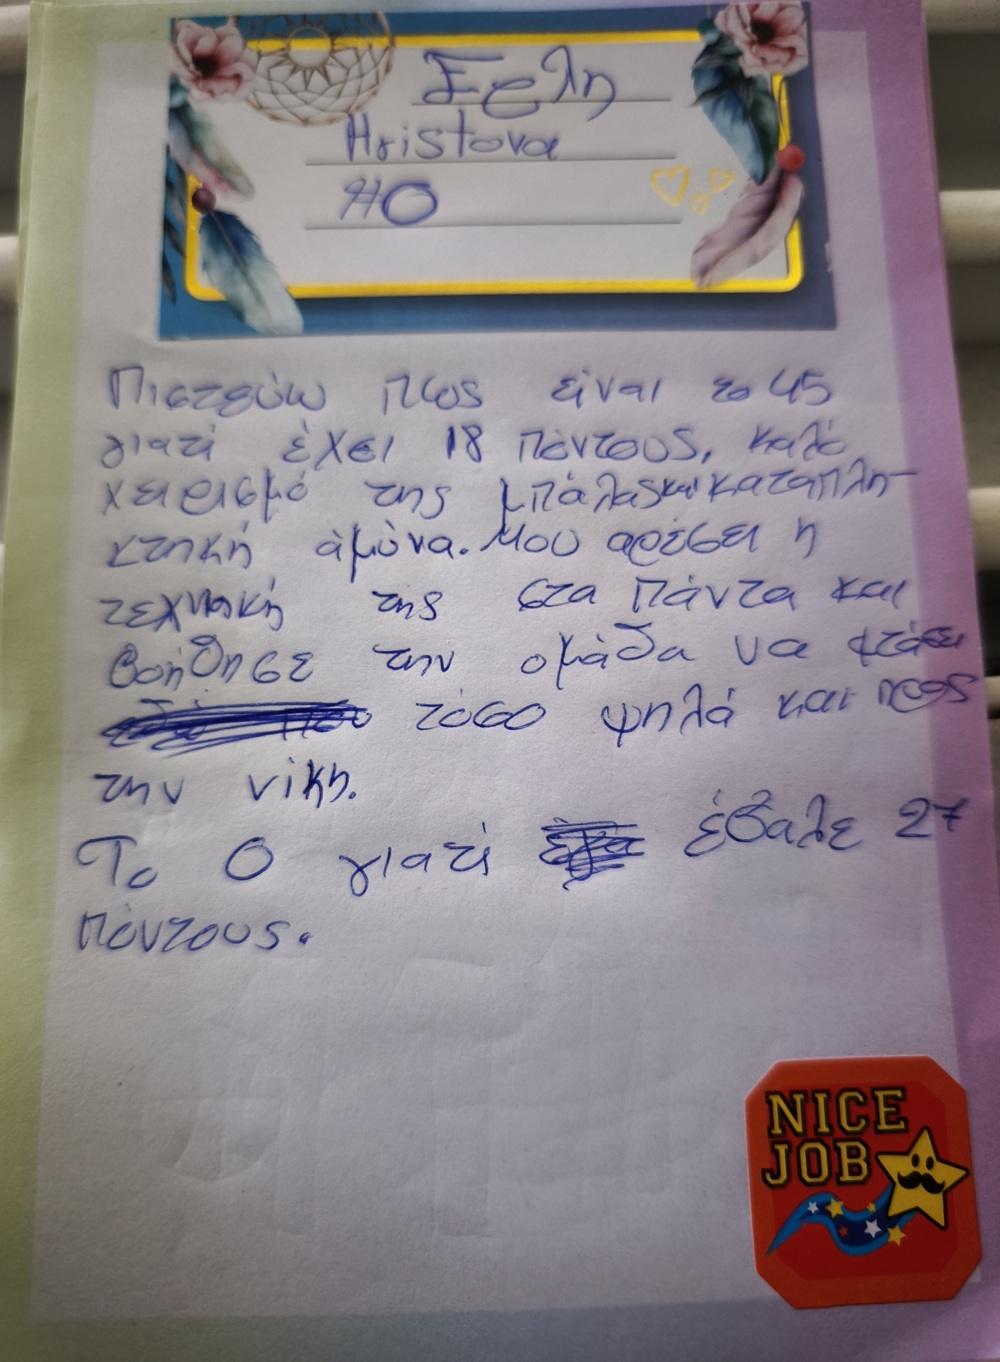 Σεμλη
Hristova
#0
Πιστεύω πως είναι το 45
γιατί έχει 18 πόντους, καλό
χειρισμό της μπάλας και καταπλη-
κτηκή άμυνα. Μου αρέσει η
τεχνική της στα πάντα και
βοήθησε την ομάδα να φτάσει
τόσο ψηλά και προς
την νίκη.
Το 0 γιατί έβαλε 27
πόντους.
NICE
JOB